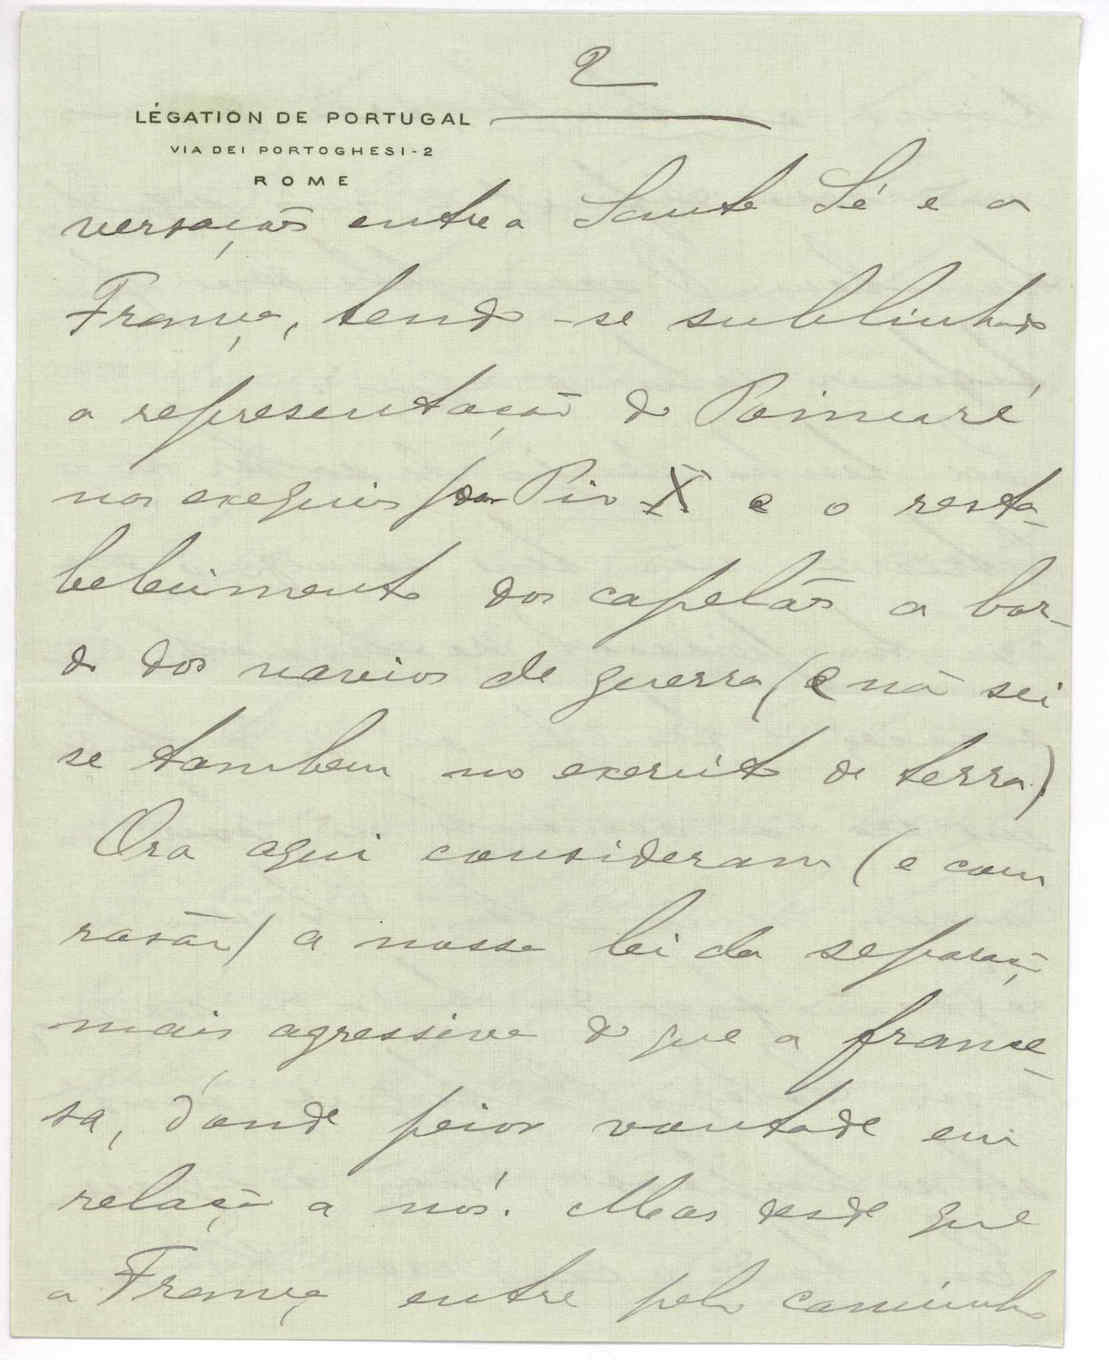 2
LÉGATION DE PORTUGAL
VIA DEI PORTOGHESI-2
ROME
versação entre a Santa Sé e a
França, tendo-se sublinhado
a representação de Poincaré
nas exequias por Pio X e o resta-
belecimento dos capelães a bor-
do dos navios de guerra (e não sei
se tambem no exercito de terra)
Ora aqui consideram (e com
rasão) a nossa lei da separação
mais agressiva do que a france-
sa, d'onde peior vontade em
relação a nós. Mas desde que
a França entre pelo caminho